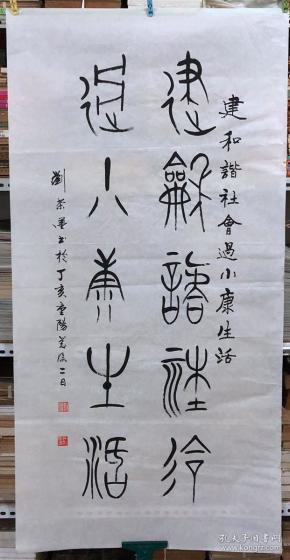 建和諧社會過小康生活
建龢諧社會
過小康生活
劉荣墨书於丁亥重陽后二日
孔夫子旧书网
www.kongfz.com